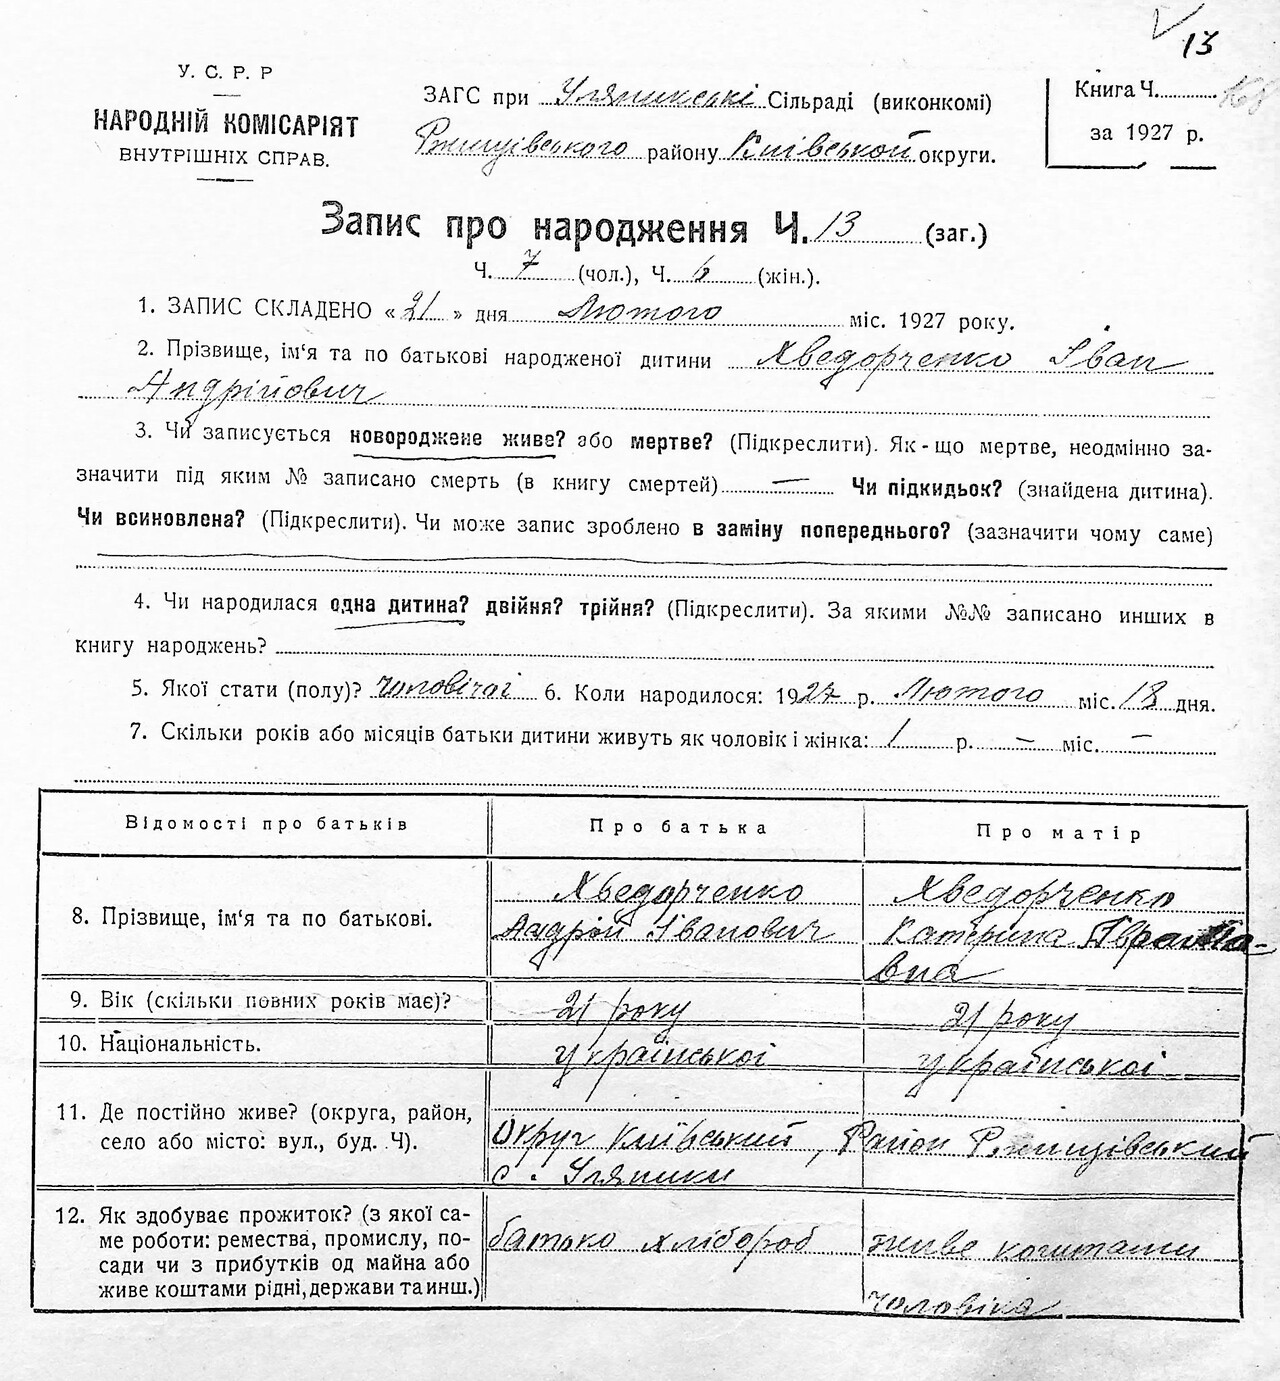 13
У. С. Р. Р
НАРОДНІЙ КОМІСАРІЯТ
ВНУТРІШНІХ СПРАВ.
ЗАГС при Уляниксьскі Сільраді (виконкомі)
Ржищівського району Київськой округи.
Книга Ч.
за 1927 р.
Запис про народження Ч. 13 (заг.)
Ч. 7 (чол.), Ч. 6 (жін.).
1. ЗАПИС СКЛАДЕНО « 21 » дня Лютого міс. 1927 року.
2. Прізвище, ім'я та по батькові народженої дитини Хведорченко Іван
Андрійович
3. Чи записується новороджене живе? або мертве? (Підкреслити). Як-що мертве, неодмінно за-
значити під яким № записано смерть (в книгу смертей) — Чи підкидьок? (знайдена дитина).
Чи всиновлена? (Підкреслити). Чи може запис зроблено в заміну попереднього? (зазначити чому саме)
4. Чи народилася одна дитина? двійня? трійня? (Підкреслити). За якими №№ записано инших в
книгу народжень?
5. Якої стати (полу)? чоловічаі 6. Коли народилося: 1927 р. Лютого міс. 18 дня.
7. Скільки років або місяців батьки дитини живуть як чоловік і жінка: 1 р. — міс. —
Відомості про батьків Про батька Про матір
8. Прізвище, ім'я та по батькові.
Хведорченко
Андрій Іванович
Хведорченко
Катерина Аврамів-
вна
9. Вік (скільки повних років має)? 21 року 21 року
10. Національність. української української
11. Де постійно живе? (округа, район,
село або місто: вул., буд. Ч).
Округ Київський, Район Ржищівський
с. Уляники
12. Як здобуває прожиток? (з якої са-
ме роботи: ремества, промислу, по-
сади чи з прибутків од майна або
живе коштами рідні, держави та инш.)
батько хлібороб
живе коштами
чоловіка